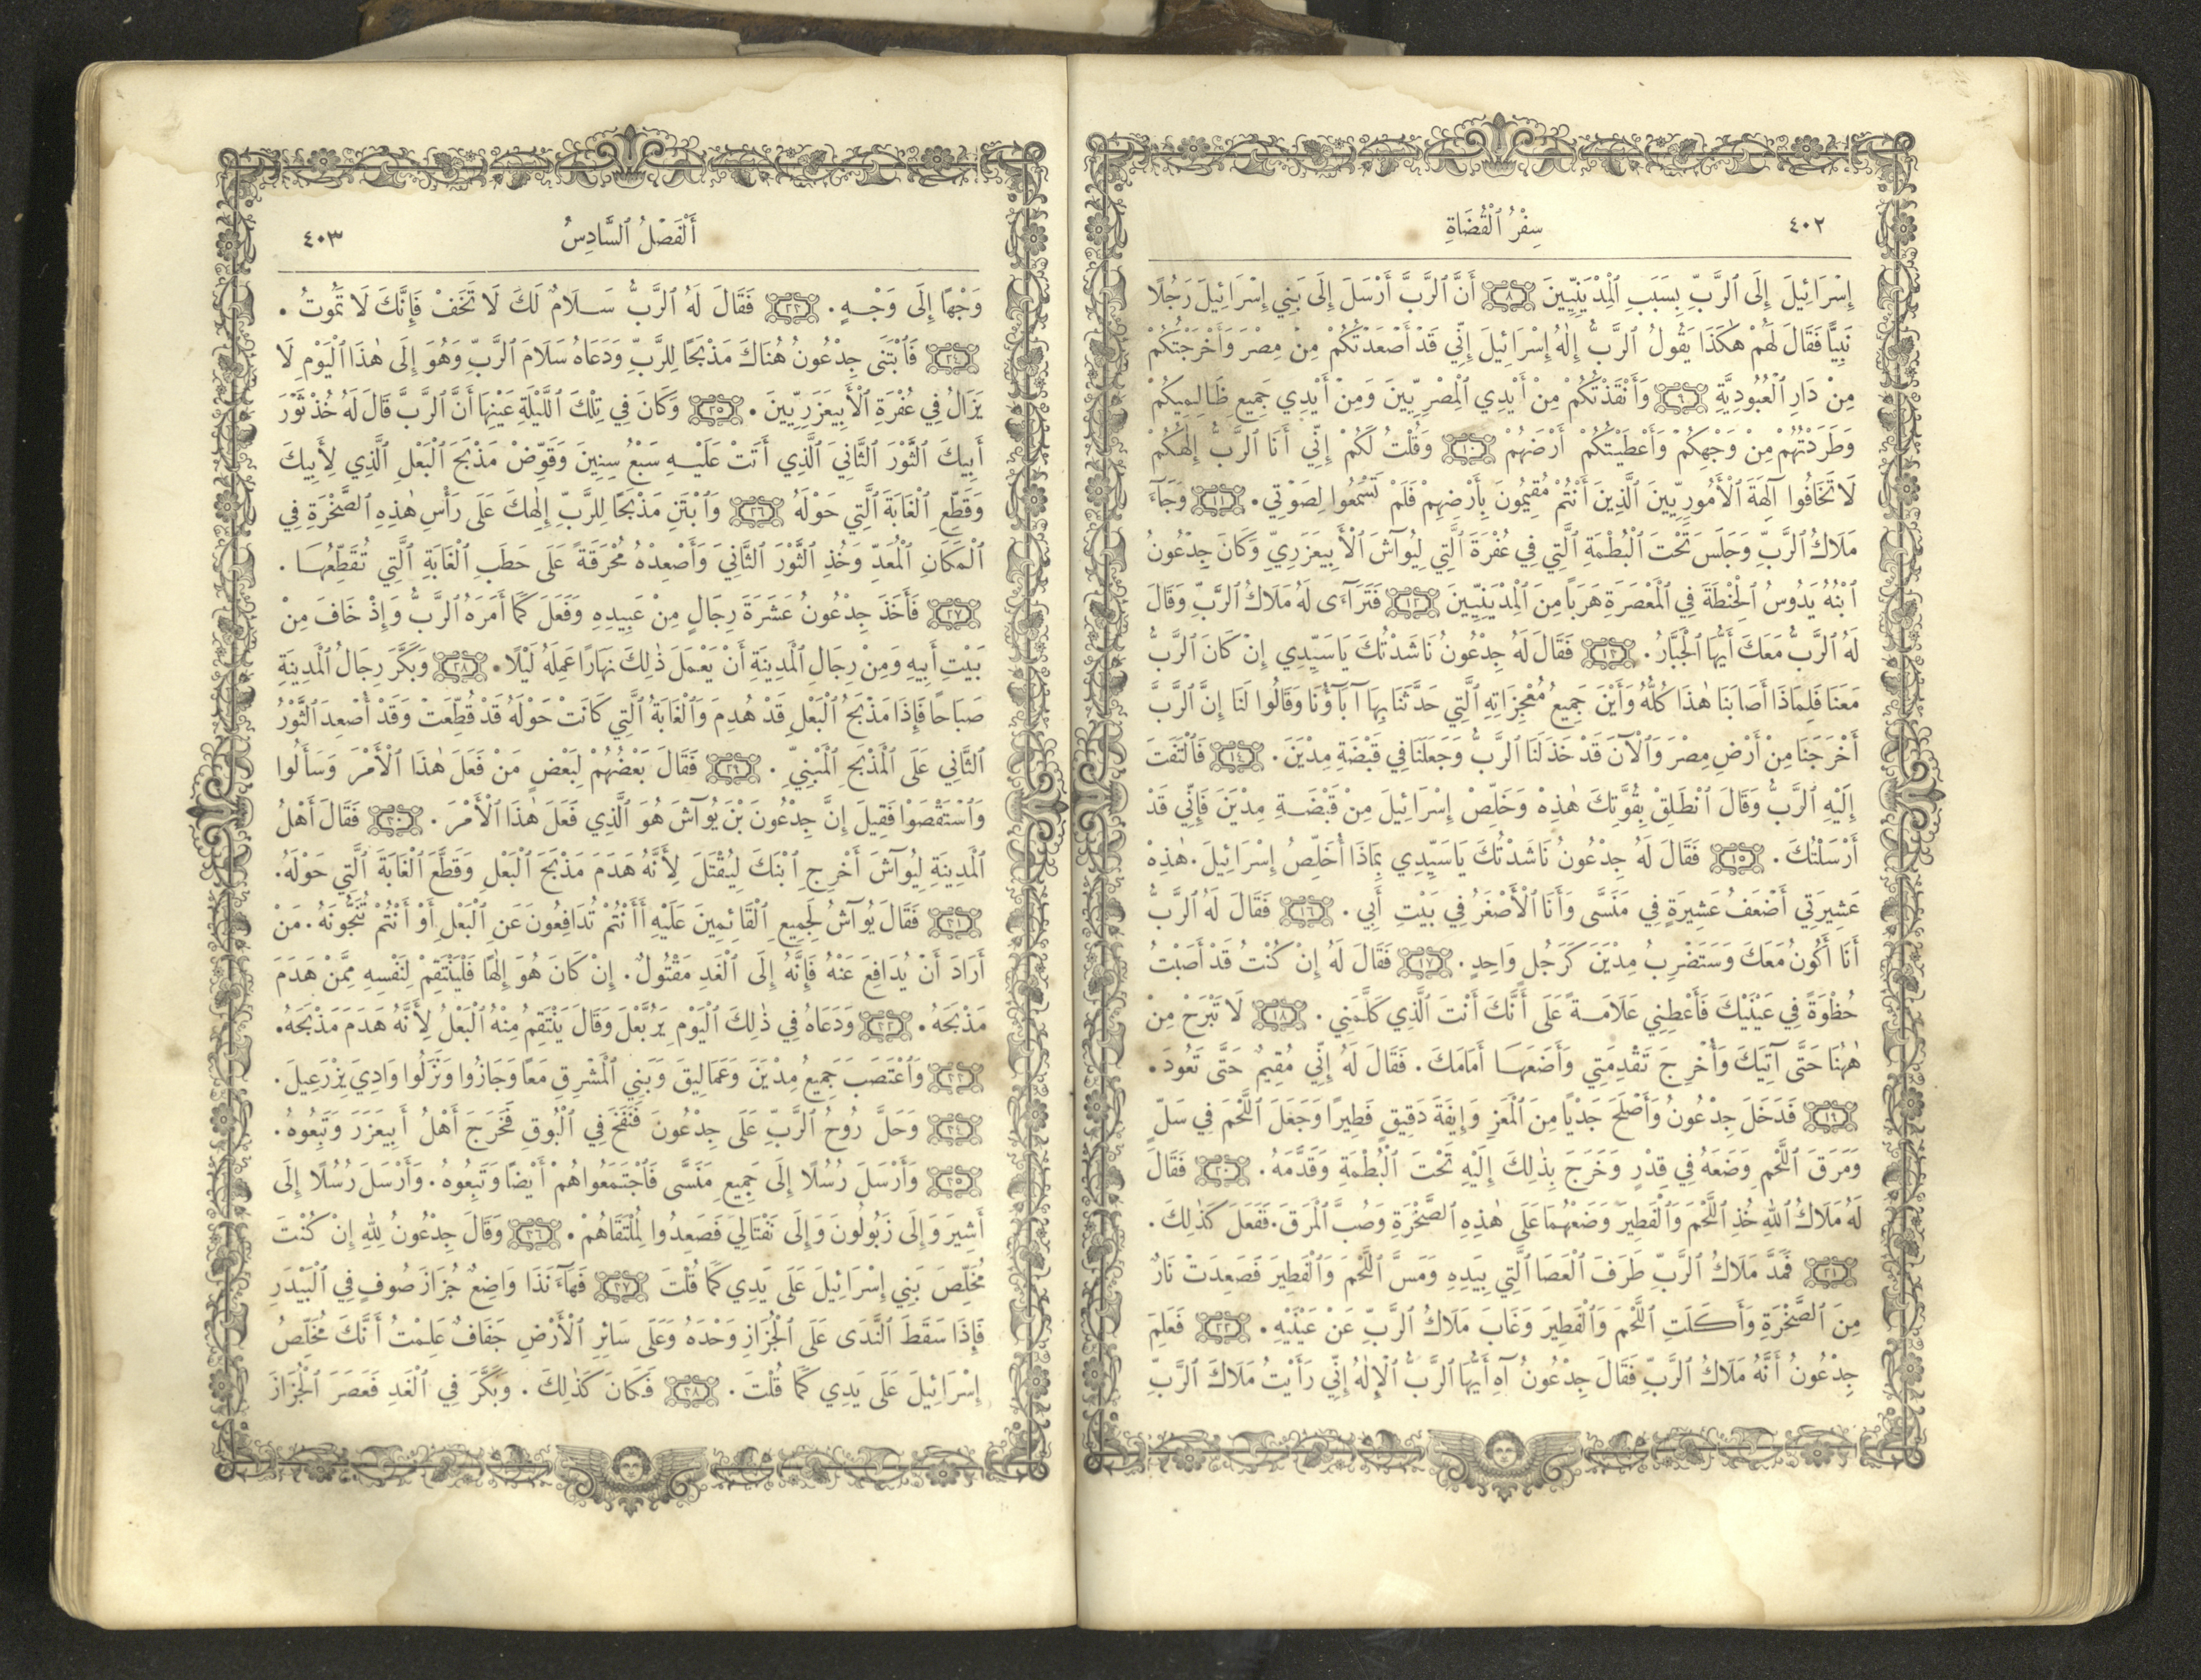 ٤٠٢
سِفْرُ ٱلْقُضَاةِ
إِسْرَائِيلَ إِلَى ٱلرَّبِّ بِسَبَبِ ٱلْمِدْيَنِيِّينَ ٨ أَنَّ ٱلرَّبَّ أَرْسَلَ إِلَى بَنِي إِسْرَائِيلَ رَجُلًا
نَبِيًّا فَقَالَ لَهُمْ هٰكَذَا يَقُولُ ٱلرَّبُّ إِلٰهُ إِسْرَائِيلَ إِنِّي قَدْ أَصْعَدْتُكُمْ مِنْ مِصْرَ وَأَخْرَجْتُكُمْ
مِنْ دَارِ ٱلْعُبُودِيَّةِ ٩ وَأَنْقَذْتُكُمْ مِنْ أَيْدِي ٱلْمِصْرِيِّينَ وَمِنْ أَيْدِي جَمِيعِ ظَالِمِيكُمْ
وَطَرَدْتُهُمْ مِنْ وَجْهِكُمْ وَأَعْطَيْتُكُمْ أَرْضَهُمْ ١٠ وَقُلْتُ لَكُمْ إِنِّي أَنَا ٱلرَّبُّ إِلٰهُكُمْ
لَا تَخَافُوا آلِهَةَ ٱلْأَمُورِيِّينَ ٱلَّذِينَ أَنْتُمْ مُقِيمُونَ بِأَرْضِهِمْ فَلَمْ تَسْمَعُوا لِصَوْتِي. ١١ وَجَآءَ
مَلَاكُ ٱلرَّبِّ وَجَلَسَ تَحْتَ ٱلْبُطْمَةِ ٱلَّتِي فِي عُفْرَةَ ٱلَّتِي لِيُوآشَ ٱلْأَبِيعَزَرِيِّ وَكَانَ جِدْعُونُ
ٱبْنُهُ يَدُوسُ ٱلْحِنْطَةَ فِي ٱلْمَعْصَرَةِ هَرَبًا مِنَ ٱلْمِدْيَنِيِّينَ ١٢ فَتَرَآءَى لَهُ مَلَاكُ ٱلرَّبِّ وَقَالَ
لَهُ ٱلرَّبُّ مَعَكَ أَيُّهَا ٱلْجَبَّارُ. ١٣ فَقَالَ لَهُ جِدْعُونُ نَاشَدْتُكَ يَا سَيِّدِي إِنْ كَانَ ٱلرَّبُّ
مَعَنَا فَلِمَاذَا أَصَابَنَا هٰذَا كُلُّهُ وَأَيْنَ جَمِيعُ مُعْجِزَاتِهِ ٱلَّتِي حَدَّثَنَا بِهَا آبَآؤُنَا وَقَالُوا لَنَا إِنَّ ٱلرَّبَّ
أَخْرَجَنَا مِنْ أَرْضِ مِصْرَ وَٱلْآنَ قَدْ خَذَلَنَا ٱلرَّبُّ وَجَعَلَنَا فِي قَبْضَةِ مِدْيَنَ. ١٤ فَٱلْتَفَتَ
إِلَيْهِ ٱلرَّبُّ وَقَالَ ٱنْطَلِقْ بِقُوَّتِكَ هٰذِهْ وَخَلِّصْ إِسْرَائِيلَ مِنْ قَبْضَةِ مِدْيَنَ فَإِنِّي قَدْ
أَرْسَلْتُكَ. ١٥ فَقَالَ لَهُ جِدْعُونُ نَاشَدْتُكَ يَا سَيِّدِي بِمَاذَا أُخَلِّصُ إِسْرَائِيلَ. هٰذِهْ
عَشِيرَتِي أَضْعَفُ عَشِيرَةٍ فِي مَنَسَّى وَأَنَا ٱلْأَصْغَرُ فِي بَيْتِ أَبِي. ١٦ فَقَالَ لَهُ ٱلرَّبُّ
أَنَا أَكُونُ مَعَكَ وَسَتَضْرِبُ مِدْيَنَ كَرَجُلٍ وَاحِدٍ. ١٧ فَقَالَ لَهُ إِنْ كُنْتُ قَدْ أَصَبْتُ
حُظْوَةً فِي عَيْنَيْكَ فَأَعْطِنِي عَلَامَةً عَلَى أَنَّكَ أَنْتَ ٱلَّذِي كَلَّمَنِي. ١٨ لَا تَبْرَحْ مِنْ
هٰهُنَا حَتَّى آتِيَكَ وَأُخْرِجَ تَقْدِمَتِي وَأَضَعَهَا أَمَامَكَ. فَقَالَ لَهُ إِنِّي مُقِيمٌ حَتَّى تَعُودَ.
١٩ فَدَخَلَ جِدْعُونُ وَأَصْلَحَ جَدْيًا مِنَ ٱلْمَعَزِ وَإِيفَةَ دَقِيقٍ فَطِيرًا وَجَعَلَ ٱللَّحْمَ فِي سَلٍّ
وَمَرَقَ ٱللَّحْمِ وَضَعَهُ فِي قِدْرٍ وَخَرَجَ بِذٰلِكَ إِلَيْهِ تَحْتَ ٱلْبُطْمَةِ وَقَدَّمَهُ. ٢٠ فَقَالَ
لَهُ مَلَاكُ ٱللهِ خُذِ ٱللَّحْمَ وَٱلْفَطِيرَ وَضَعْهُمَا عَلَى هٰذِهِ ٱلصَّخْرَةِ وَصُبَّ ٱلْمَرَقَ. فَفَعَلَ كَذٰلِكَ.
٢١ فَمَدَّ مَلَاكُ ٱلرَّبِّ طَرَفَ ٱلْعَصَا ٱلَّتِي بِيَدِهِ وَمَسَّ ٱللَّحْمَ وَٱلْفَطِيرَ فَصَعِدَتْ نَارٌ
مِنَ ٱلصَّخْرَةِ وَأَكَلَتِ ٱللَّحْمَ وَٱلْفَطِيرَ وَغَابَ مَلَاكُ ٱلرَّبِّ عَنْ عَيْنَيْهِ. ٢٢ فَعَلِمَ
جِدْعُونُ أَنَّهُ مَلَاكُ ٱلرَّبِّ فَقَالَ جِدْعُونُ آهِ أَيُّهَا ٱلرَّبُّ ٱلْإِلٰهُ إِنِّي رَأَيْتُ مَلَاكَ ٱلرَّبِّ
أَلْفَصْلُ ٱلسَّادِسُ
٤٠٣
وَجْهًا إِلَى وَجْهٍ. ٢٣ فَقَالَ لَهُ ٱلرَّبُّ سَلَامٌ لَكَ لَا تَخَفْ فَإِنَّكَ لَا تَمُوتُ.
٢٤ فَٱبْتَنَى جِدْعُونُ هُنَاكَ مَذْبَحًا لِلرَّبِّ وَدَعَاهُ سَلَامَ ٱلرَّبِّ وَهُوَ إِلَى هٰذَا ٱلْيَوْمِ لَا
يَزَالُ فِي عُفْرَةِ ٱلْأَبِيعَزَرِيِّينَ. ٢٥ وَكَانَ فِي تِلْكَ ٱللَّيْلَةِ عَيْنِهَا أَنَّ ٱلرَّبَّ قَالَ لَهُ خُذْ ثَوْرَ
أَبِيكَ ٱلثَّوْرَ ٱلثَّانِيَ ٱلَّذِي أَتَتْ عَلَيْهِ سَبْعُ سِنِينَ وَقَوِّضْ مَذْبَحَ ٱلْبَعْلِ ٱلَّذِي لِأَبِيكَ
وَقَطِّعِ ٱلْغَابَةَ ٱلَّتِي حَوْلَهُ ٢٦ وَٱبْتَنِ مَذْبَحًا لِلرَّبِّ إِلٰهِكَ عَلَى رَأْسِ هٰذِهِ ٱلصَّخْرَةِ فِي
ٱلْمَكَانِ ٱلْمُعَدِّ وَخُذِ ٱلثَّوْرَ ٱلثَّانِيَ وَأَصْعِدْهُ مُحْرَقَةً عَلَى حَطَبِ ٱلْغَابَةِ ٱلَّتِي تُقَطِّعُهَا.
٢٧ فَأَخَذَ جِدْعُونُ عَشَرَةَ رِجَالٍ مِنْ عَبِيدِهِ وَفَعَلَ كَمَا أَمَرَهُ ٱلرَّبُّ وَإِذْ خَافَ مِنْ
بَيْتِ أَبِيهِ وَمِنْ رِجَالِ ٱلْمَدِينَةِ أَنْ يَعْمَلَ ذٰلِكَ نَهَارًا عَمِلَهُ لَيْلًا. ٢٨ وَبَكَّرَ رِجَالُ ٱلْمَدِينَةِ
صَبَاحًا فَإِذَا مَذْبَحُ ٱلْبَعْلِ قَدْ هُدِمَ وَٱلْغَابَةُ ٱلَّتِي كَانَتْ حَوْلَهُ قَدْ قُطِّعَتْ وَقَدْ أُصْعِدَ ٱلثَّوْرُ
ٱلثَّانِي عَلَى ٱلْمَذْبَحِ ٱلْمَبْنِيِّ. ٢٩ فَقَالَ بَعْضُهُمْ لِبَعْضٍ مَنْ فَعَلَ هٰذَا ٱلْأَمْرَ وَسَأَلُوا
وَٱسْتَقْصَوْا فَقِيلَ إِنَّ جِدْعُونَ بْنَ يُوآشَ هُوَ ٱلَّذِي فَعَلَ هٰذَا ٱلْأَمْرَ. ٣٠ فَقَالَ أَهْلُ
ٱلْمَدِينَةِ لِيُوآشَ أَخْرِجِ ٱبْنَكَ لِيُقْتَلَ لِأَنَّهُ هَدَمَ مَذْبَحَ ٱلْبَعْلِ وَقَطَّعَ ٱلْغَابَةَ ٱلَّتِي حَوْلَهُ.
٣١ فَقَالَ يُوآشُ لِجَمِيعِ ٱلْقَائِمِينَ عَلَيْهِ أَأَنْتُمْ تُدَافِعُونَ عَنِ ٱلْبَعْلِ أَوْ أَنْتُمْ تُنَجُّونَهُ. مَنْ
أَرَادَ أَنْ يُدَافِعَ عَنْهُ فَإِنَّهُ إِلَى ٱلْغَدِ مَقْتُولٌ. إِنْ كَانَ هُوَ إِلٰهًا فَلْيَنْتَقِمْ لِنَفْسِهِ مِمَّنْ هَدَمَ
مَذْبَحَهُ. ٣٢ وَدَعَاهُ فِي ذٰلِكَ ٱلْيَوْمِ يَرُبَّعْلَ وَقَالَ يَنْتَقِمُ مِنْهُ ٱلْبَعْلُ لِأَنَّهُ هَدَمَ مَذْبَحَهُ.
٣٣ وَٱعْتَصَبَ جَمِيعُ مِدْيَنَ وَعَمَالِيقَ وَبَنِي ٱلْمَشْرِقِ مَعًا وَجَازُوا وَنَزَلُوا وَادِيَ يِزْرَعِيلَ.
٣٤ وَحَلَّ رُوحُ ٱلرَّبِّ عَلَى جِدْعُونَ فَنَفَخَ فِي ٱلْبُوقِ فَخَرَجَ أَهْلُ أَبِيعَزَرَ وَتَبِعُوهُ.
٣٥ وَأَرْسَلَ رُسُلًا إِلَى جَمِيعِ مَنَسَّى فَٱجْتَمَعُوا هُمْ أَيْضًا وَتَبِعُوهُ. وَأَرْسَلَ رُسُلًا إِلَى
أَشِيرَ وَإِلَى زَبُولُونَ وَإِلَى نَفْتَالِيَ فَصَعِدُوا لِمُلْتَقَاهُمْ. ٣٦ وَقَالَ جِدْعُونُ لِلّٰهِ إِنْ كُنْتَ
مُخَلِّصَ بَنِي إِسْرَائِيلَ عَلَى يَدِي كَمَا قُلْتَ ٣٧ فَهَآءَنَذَا وَاضِعٌ جُزَازَ صُوفٍ فِي ٱلْبَيْدَرِ
فَإِذَا سَقَطَ ٱلنَّدَى عَلَى ٱلْجُزَازِ وَحْدَهُ وَعَلَى سَائِرِ ٱلْأَرْضِ جَفَافٌ عَلِمْتُ أَنَّكَ مُخَلِّصُ
إِسْرَائِيلَ عَلَى يَدِي كَمَا قُلْتَ. ٣٨ فَكَانَ كَذٰلِكَ. وَبَكَّرَ فِي ٱلْغَدِ فَعَصَرَ ٱلْجُزَازَ